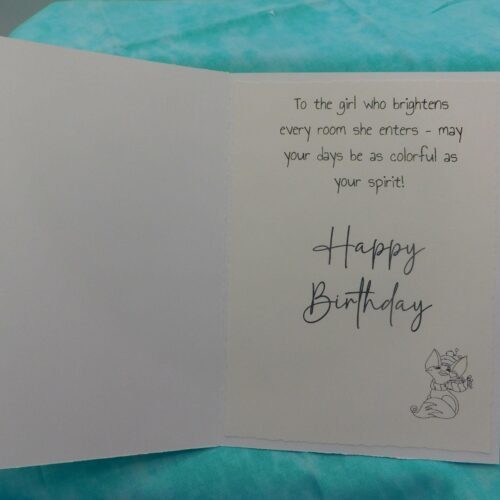 To the girl who brightens
every room she enters - may
your days be as colorful as
your spirit!
Happy
Birthday